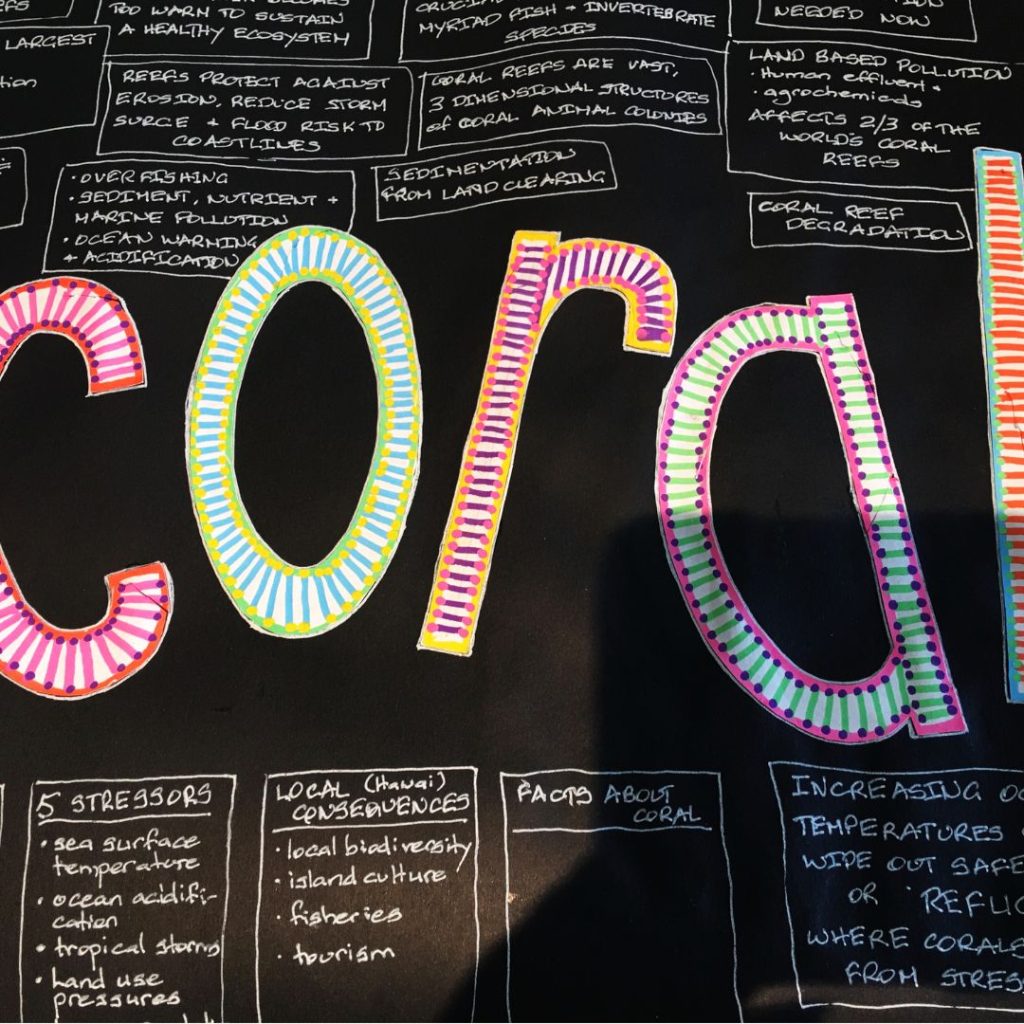 TOO WARM TO SUSTAIN
A HEALTHY ECOSYSTEM
MYRIAD FISH + INVERTEBRATE
SPECIES
NEEDED NOW
LARGEST
REEFS PROTECT AGAINST
EROSION, REDUCE STORM
SURGE + FLOOD RISK TO
COASTLINES
CORAL REEFS ARE VAST,
3 DIMENSIONAL STRUCTURES
of CORAL ANIMAL COLONIES
LAND BASED POLLUTION
• Human effluent +
• agrochemicals
AFFECTS 2/3 OF THE
WORLD'S CORAL
REEFS
• OVER FISHING
• SEDIMENT, NUTRIENT +
MARINE POLLUTION
• OCEAN WARMING
+ ACIDIFICATION
SEDIMENTATION
FROM LAND CLEARING
CORAL REEF
DEGRADATION
coral
5 STRESSORS
• sea surface
temperature
• ocean acidifi-
cation
• tropical storms
• Land use
pressures
LOCAL (Hawai)
CONSEQUENCES
• local biodiversity
• island culture
• fisheries
• tourism
FACTS ABOUT
CORAL
INCREASING
TEMPERATURES
WIPE OUT SAFE
OR 'REFUG
WHERE CORALS
FROM STRESS